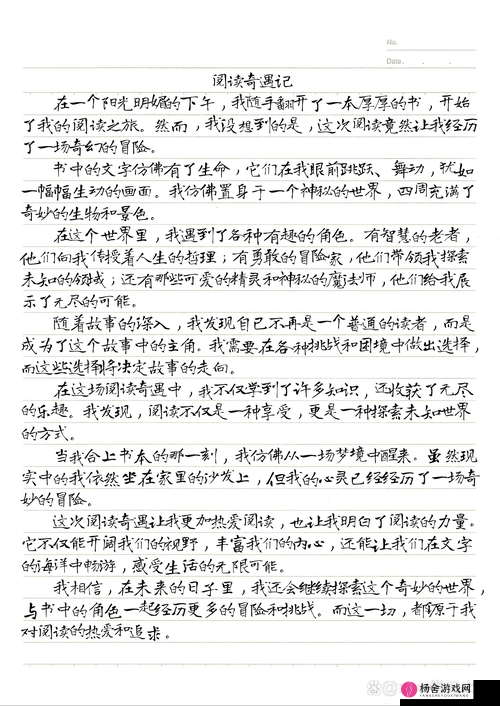 No.
Date. . .
阅读奇遇记
在一个阳光明媚的下午，我随手翻开了一本厚厚的书，开始
了我的阅读之旅。然而，我没想到的是，这次阅读竟然让我经历
了一场奇幻的冒险。
书中的文字仿佛有了生命，它们在我眼前跳跃、舞动，犹如
一幅幅生动的画面。我仿佛置身于一个神秘的世界，四周充满了
奇妙的生物和景色。
在这个世界里，我遇到了各种有趣的角色。有智慧的老者，
他们向我传授着人生的哲理；有勇敢的冒险家，他们带领我探索
未知的领域；还有那些可爱的精灵和神秘的魔法师，他们给我展
示了无尽的可能。
随着故事的深入，我发现自己不再是一个普通的读者，而是
成为了这个故事中的主角。我需要在各种挑战和困境中做出选择，
而这些选择将决定故事的走向。
在这场阅读奇遇中，我不仅学到了许多知识，还收获了无尽
的乐趣。我发现，阅读不仅是一种享受，更是一种探索未知世界
的方式。
当我合上书本的那一刻，我仿佛从一场梦境中醒来。虽然现
实中的我依然坐在家里的沙发上，但我的心灵已经经历了一场奇
妙的冒险。
这次阅读奇遇让我更加热爱阅读，也让我明白了阅读的力量。
它不仅能开阔我们的视野，丰富我们的内心，还能让我们在文字
的海洋中畅游，感受生活的无限可能。
我相信，在未来的日子里，我还会继续探索这个奇妙的世界，
与书中的角色一起经历更多的冒险和挑战。而这一切，都源于我
对阅读的热爱和追求。
杨舍游戏网